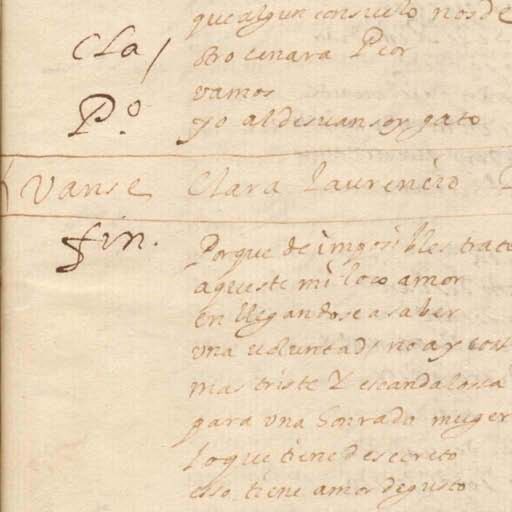 que algun consuelo nos de
Cla / otro cenara Peor
vamos
Po. yo al desuan soy gato
Vanse Clara Laurencio
fin. Porque de imposibles trat
aqueste mi loco amor
en llegandose a saber
vna voluntad no ay cos
mas triste Y escandalosa
para vna honrada muger
lo que tiene de secreto
esso tiene amor de gusto